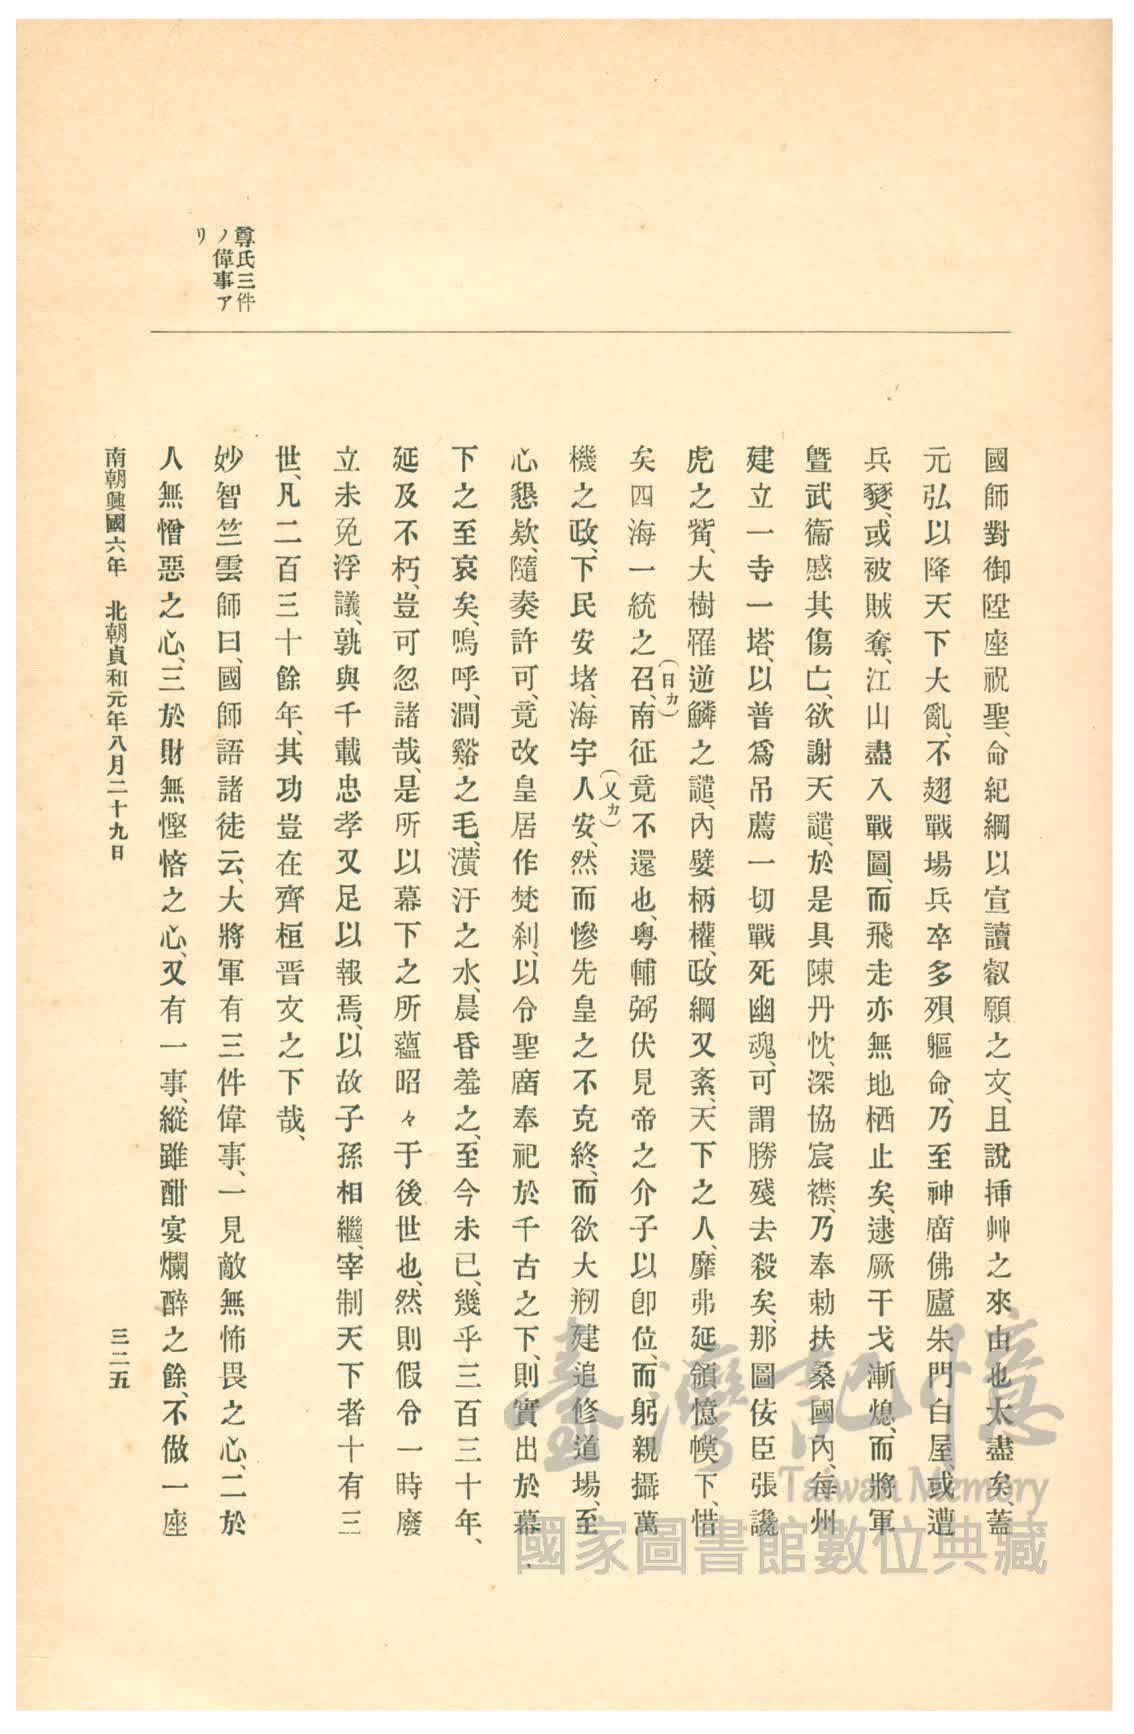 國師對御陞座祝聖、命紀綱以宣讀叡願之文、且說揷艸之來由也太盡矣、蓋
元弘以降天下大亂、不翅戰場兵卒多殞軀命、乃至神廟佛廬朱門白屋、或遭
兵燹、或被賊奪、江山盡入戰圖、而飛走亦無地栖止矣、逮厥干戈漸熄、而將軍
曁武衞慼其傷亡、欲謝天譴、於是具陳丹忱、深協宸襟、乃奉勅扶桑國內、每州
建立一寺一塔、以普爲吊薦一切戰死幽魂、可謂勝殘去殺矣、那圖佞臣張讒
虎之觜、大樹罹逆鱗之譴、內嬖柄權、政綱又紊、天下之人、靡弗延領憶幕下、惜
矣四海一統之召、南征竟不還也、粵輔弼伏見帝之介子以卽位、而躬親攝萬
(日カ)
機之政、下民安堵、海宇人安、然而慘先皇之不克終、而欲大剏建追修道場、至
(乂カ)
心懇欵、隨奏許可、竟改皇居作梵刹、以令聖廟奉祀於千古之下、則實出於幕
下之至哀矣、嗚呼、澗谿之毛、潢汙之水、晨昏羞之、至今未已、幾乎三百三十年、
延及不朽、豈可忽諸哉、是所以幕下之所蘊昭々于後世也、然則假令一時廢
立未免浮議、孰與千載忠孝又足以報焉、以故子孫相繼、宰制天下者十有三
世、凡二百三十餘年、其功豈在齊桓晋文之下哉、
妙智竺雲師曰、國師語諸徒云、大將軍有三件偉事、一見敵無怖畏之心、二於
人無憎惡之心、三於財無慳悋之心、又有一事、縱雖酣宴爛醉之餘、不做一座
尊氏三件
ノ偉事ア
リ
南朝興國六年　北朝貞和元年八月二十九日
三二五
臺灣記憶
Taiwan Memory
國家圖書館數位典藏